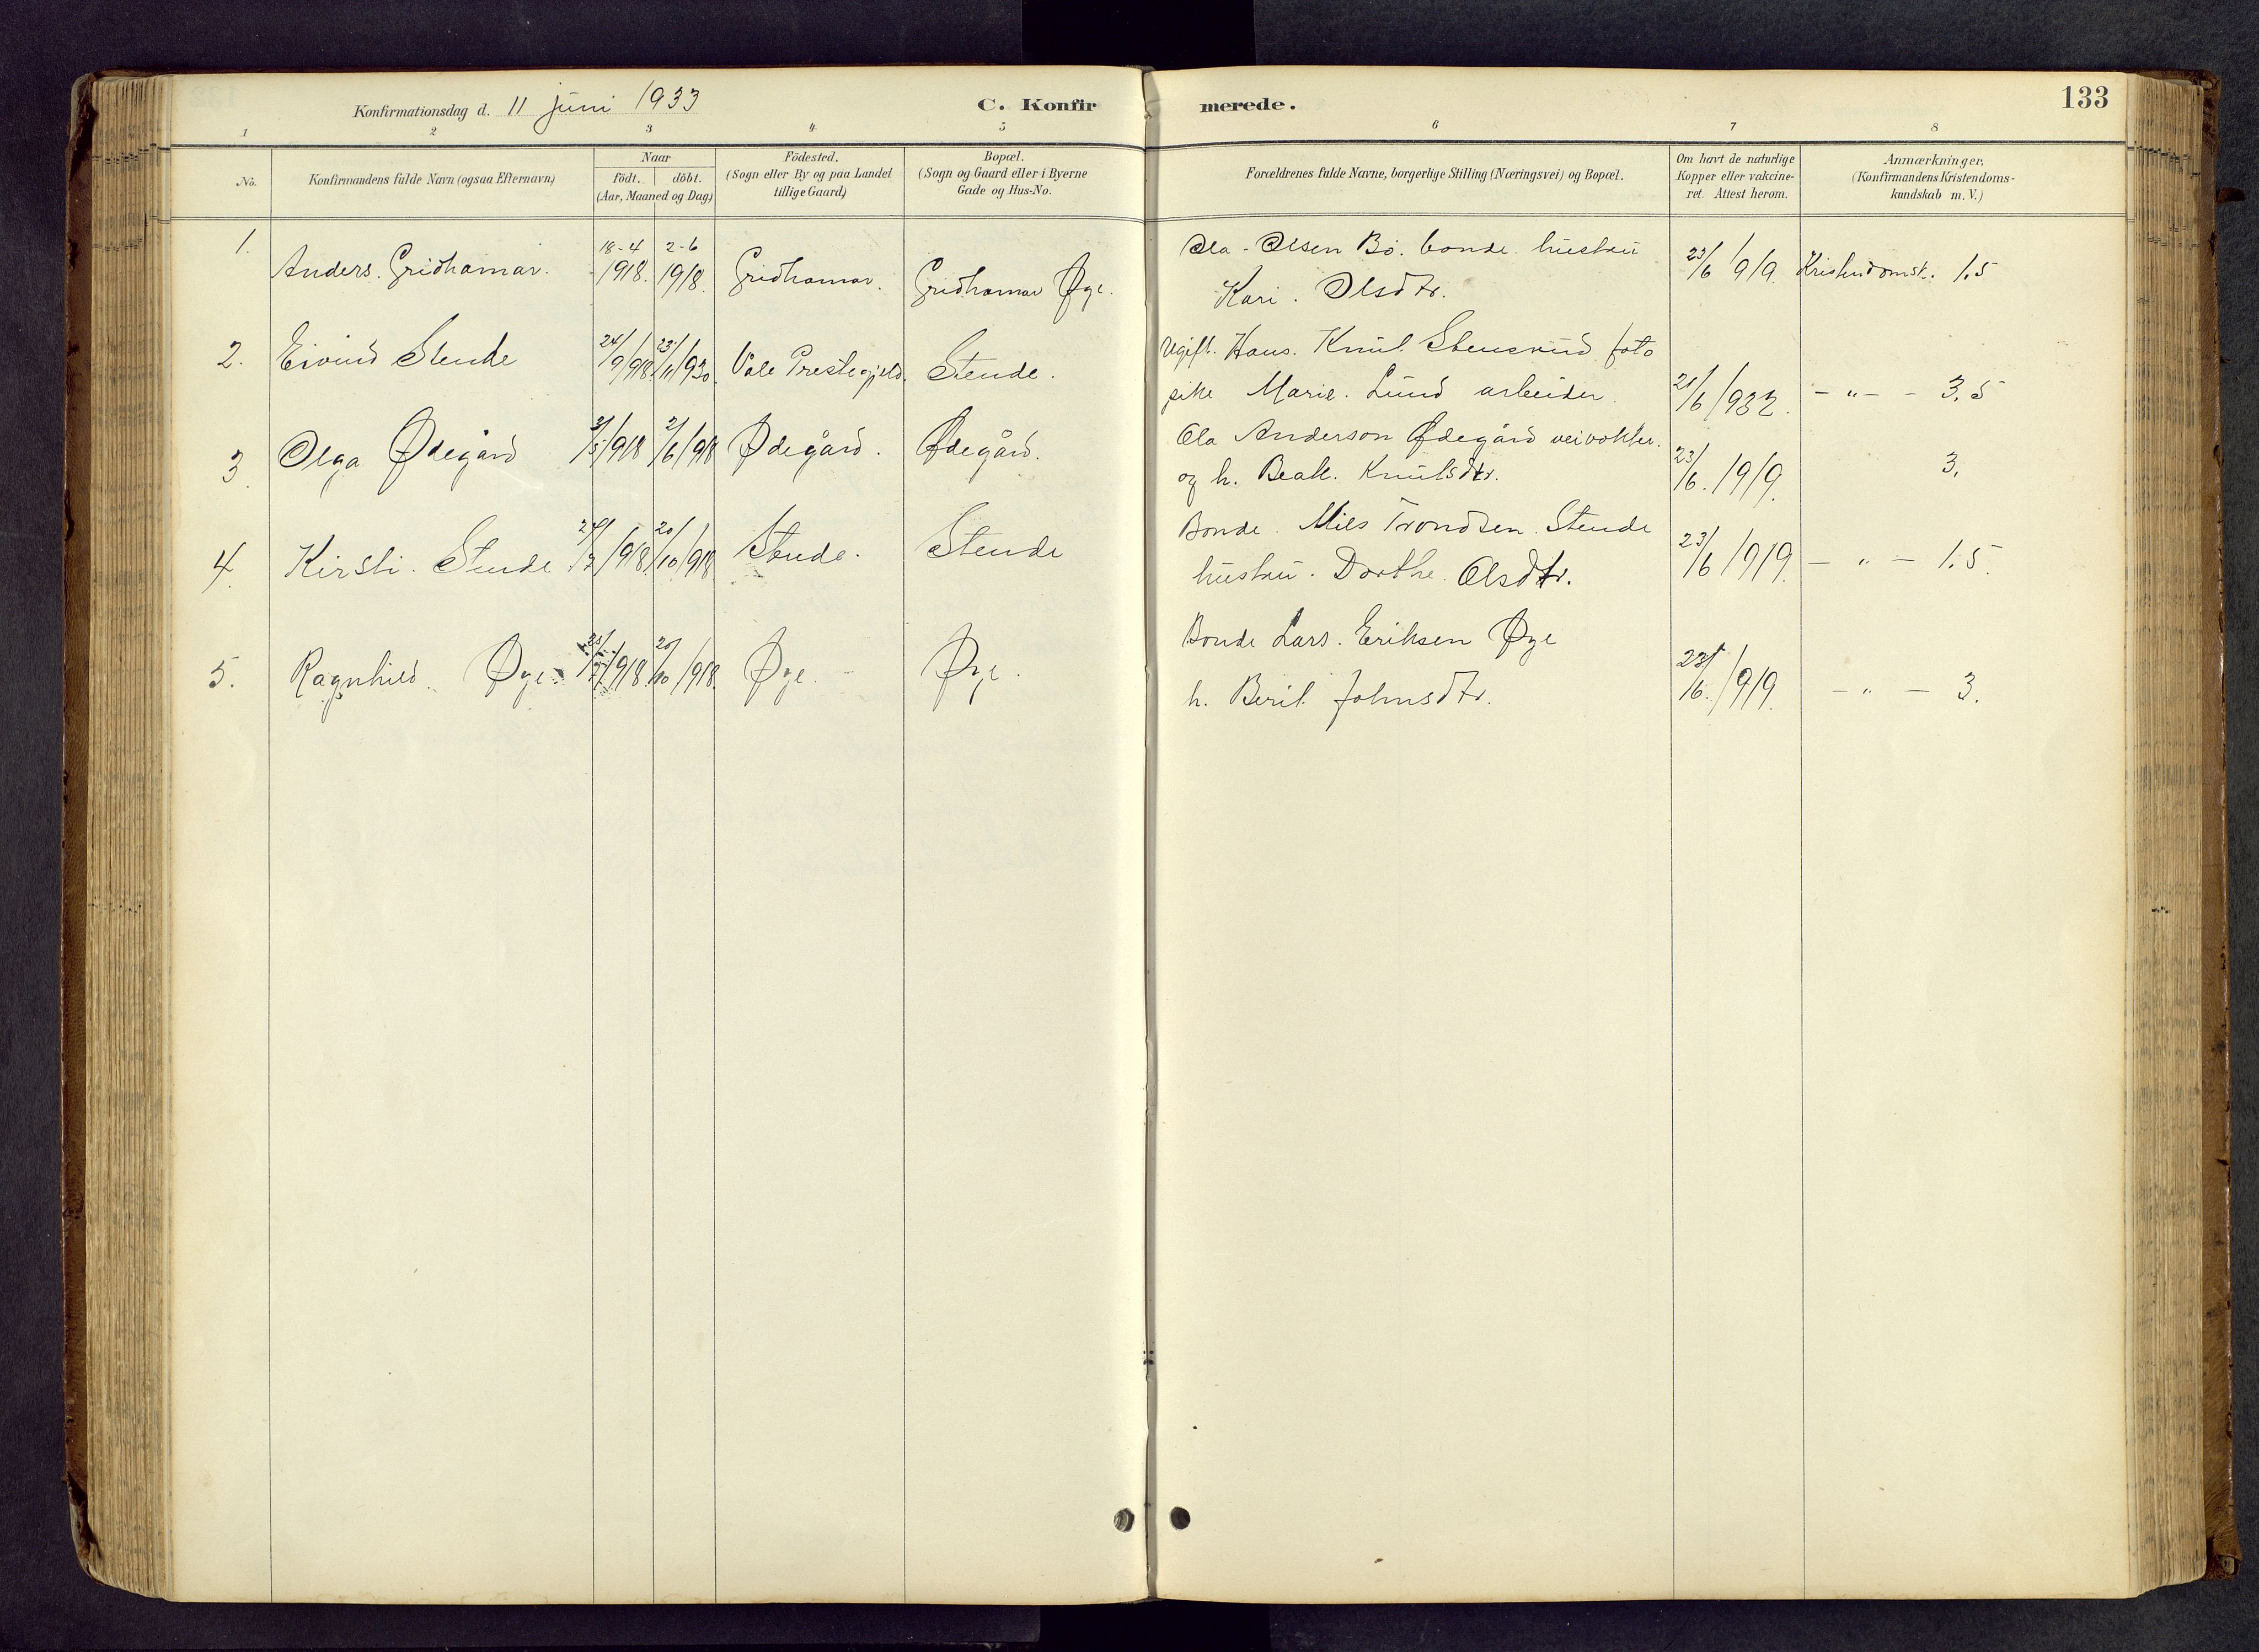 Konfirmationsdag d. 11 juni 1933
C. Konfirmerede.
133
1 2 3 4 5 6 7 8
No.
Konfirmandens fulde Navn (ogsaa Efternavn)
Naar
födt. döbt.
(Aar, Maaned og Dag)
Födested.
(Sogn eller By og paa Landet
tillige Gaard)
Bopæl.
(Sogn og Gaard eller i Byerne
Gade og Hus-No.
Forældrenes fulde Navne, borgerlige Stilling (Næringsvei) og Bopæl.
Om havt de naturlige
Kopper eller vakcine-
ret. Attest herom.
Anmærkninger.
(Konfirmandens Kristendoms-
kundskab m. V.)
1. Anders. Gridhamar. 18-4 1918. 2-6 1918. Gridhamar. Gridhamar Øye. Ola Olsen Bö. bonde hustru
Kari. Olsdtr. 23/6 1919. Kristendomsk. 1,5
2. Eivind Stende 24/9/918. 23/11/930. Våle Prestegjeld. Stende. Ugift. Hans. Knut Stensrud foto
pike Marie. Lund arbeider. 21/6/932. - " - - 3,5
3. Olga Ødegård /5/1918 2/6/918 Ødegård. Ødegård. Ola Anderson Ødegård veivokter.
og h. Beate. Knutsdtr. 23/6. 1919. 3.
4. Kirsti. Stende /918. 20/10/918 Stende. Stende Bonde. Nils Trondsen. Stende
hustru. Dorthe. Olsdtr. 23/6 1919. - " - 1,5.
5. Ragnhild Øye. /918. 20/10/918. Øye. Øye. Bonde Lars. Eriksen Øye
h. Berit Johnsdtr. 23/6. 1919. - " - 3.